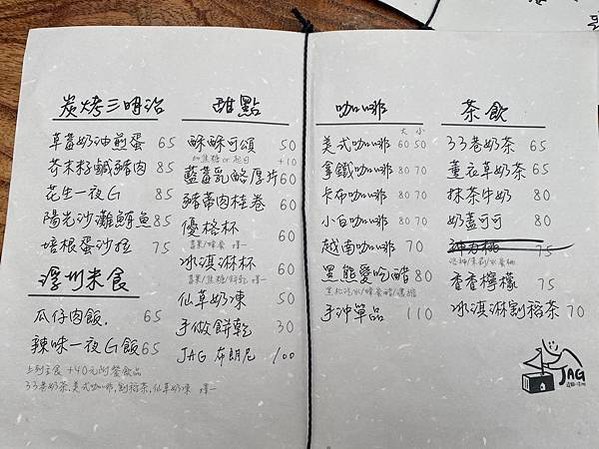 炭烤三明治
草莓奶油煎蛋 65
芥末籽鹹豬肉 85
花生一夜G 85
陽光沙灘鮪魚 85
培根蛋沙拉 75
浮州米食
瓜仔肉飯. 65
辣味一夜G飯 65
上列主食+40元附餐飲品
33巷奶茶.美式咖啡.割稻茶.仙草奶凍 擇一
甜點
酥酥可頌 50
+10
藍莓乳酪厚片 60
豬帶肉桂卷 60
優格杯 60
冰淇淋杯 60
仙草奶凍 50
手做餅乾 30
JAG 布朗尼 100
咖啡
大 小
美式咖啡 60 50
拿鐵咖啡 80 70
卡布咖啡 80 70
小白咖啡 80 70
越南咖啡 70
黑熊愛吃醋 80
手沖單品 110
茶飲
33巷奶茶 65
薰衣草奶茶 65
抹茶牛奶 80
奶蓋可可 80
75
香香檸檬 75
冰淇淋割稻茶 70
JAG